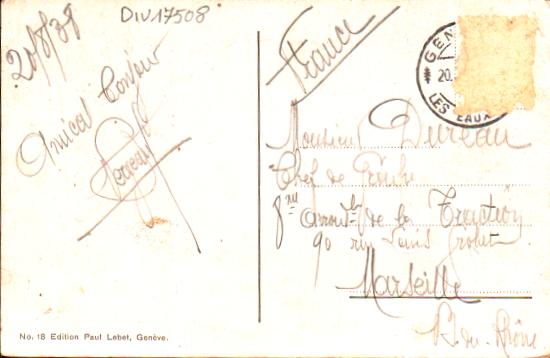 20/8/38
DIV17508
Amical Bonjour
France
GEN
20.
LES EAUX
Monsieur Dureau
Chef de
8me de la Traction
90 rue
Marseille
B. du Rhône
No. 18 Edition Paul Lebet, Genève.